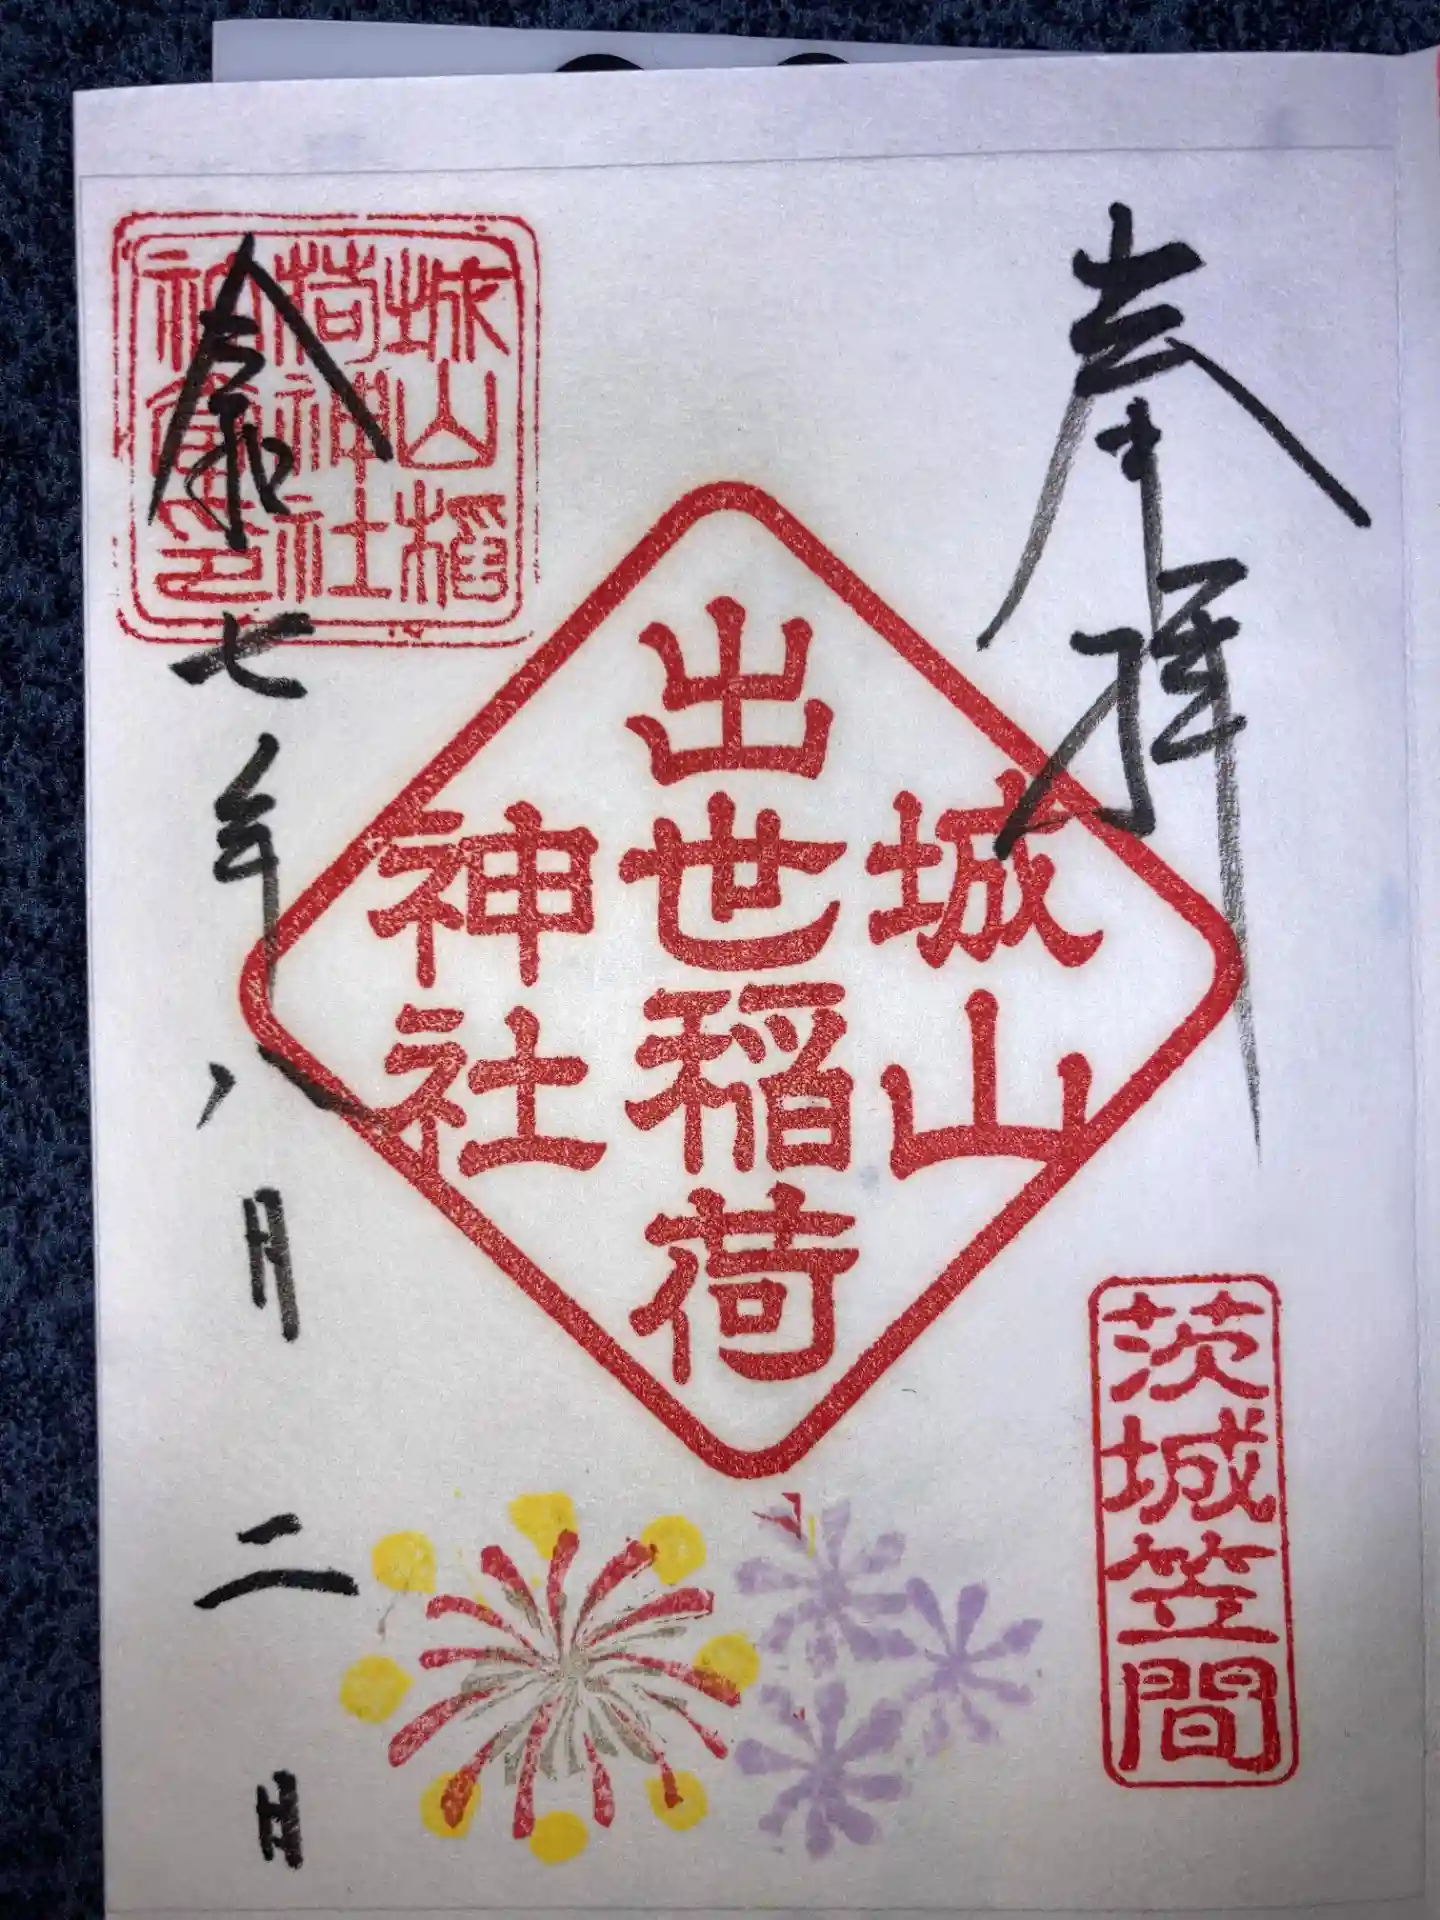 奉拝
茨城笠間
城山
出世稲荷
神社
城山稲
荷神社
令和七年八月二日